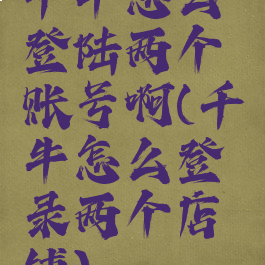 千牛怎么
登陆两个
账号啊(千
牛怎么登
录两个店
铺)